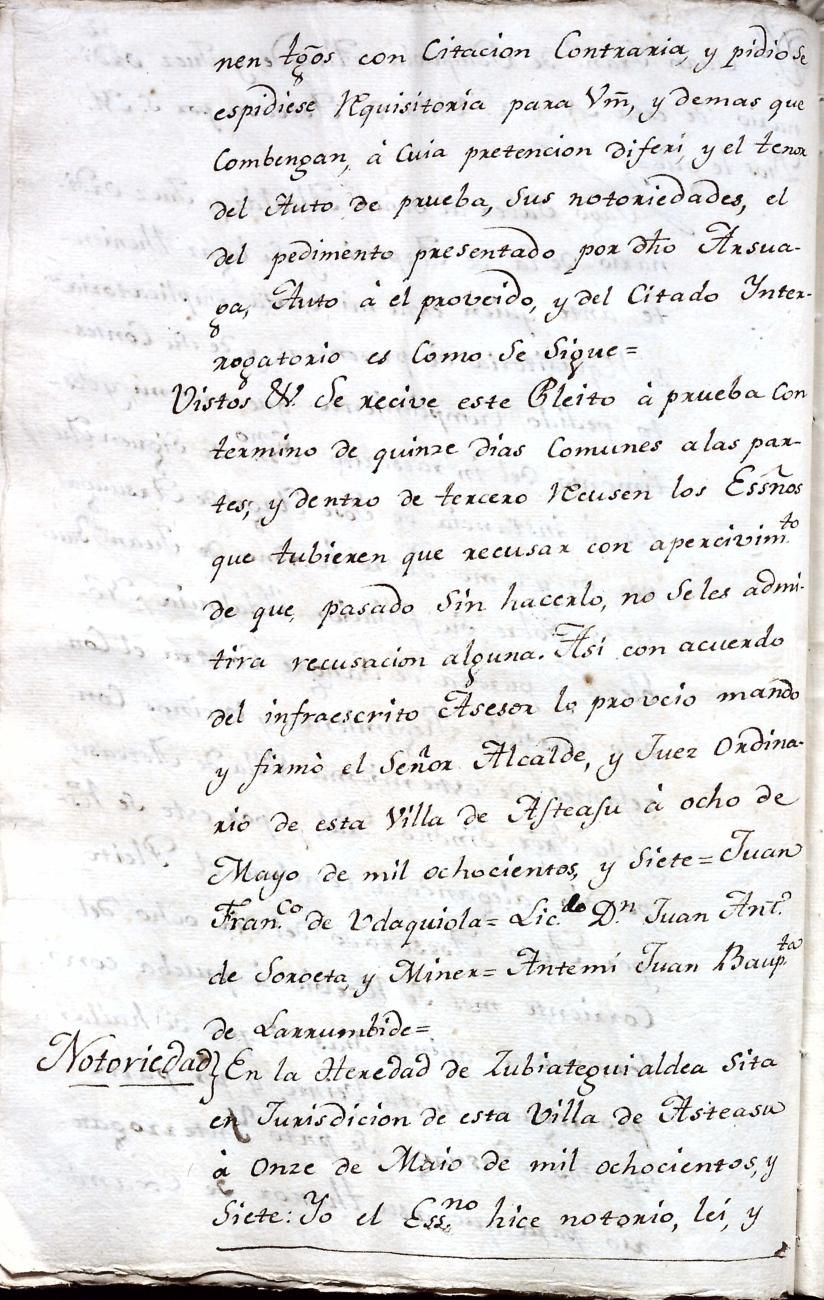 nen tgõs con Citacion Contraria, y pidio se
espidiese Requisitoria para Vm̃, y demas que
Combengan, à Cuia pretencion diferi, y el tenor
del Auto de prueba, Sus notoriedades, el
del pedimento presentado por dh̃o Arsua-
ga, Auto à él proveido, y del Citado Inter-
rogatorio es Como Se Sigue=
Vistos &.ª Se recive este Pleito à prueba Con
termino de quinze dias Comunes a las par-
tes; y dentro de tercero Recusen los Essños
que tubieren que recusar con apercivim.to
de que, pasado Sin hacerlo, no Seles admi-
tira recusacion alguna. Asi con acuerdo
del infraescrito Asesor lo proveio mandó
y firmò el Señor Alcalde, y Juez Ordina-
rio de esta Villa de Asteasu à ocho de
Mayo de mil ochocientos, y Siete= Juan
Fran.co de Udaquiola= Lic.do D.n Juan Ant.o
de Soroeta, y Miner= Antemi Juan Baup.ta
de Larrumbide=
Notoriedad} En la Heredad de Zubiategui aldea Sita
en Jurisdicion de esta Villa de Asteasu
à Onze de Maio de mil ochocientos, y
Siete: Yo el Ess.no hice notorio, lei, y